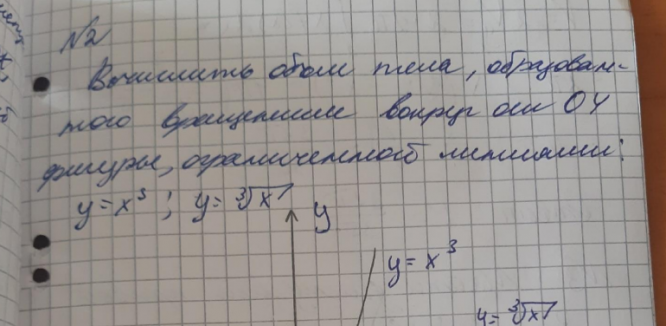 N2
Вычислить объем тела, образован-
ного вращением вокруг оси OY
фигуры, ограниченной линиями:
y = x³ ; y = ∛x
y
y = x³
y = ∛x